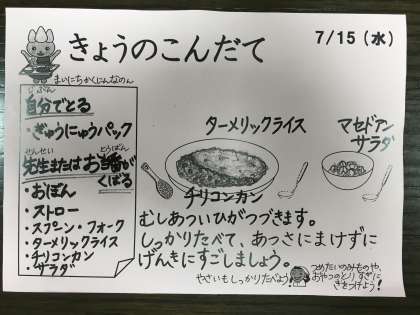 きょうのこんだて
7/15（水）
まいにちかくにんなのん
じぶん
自分でとる
・ぎゅうにゅうパック
せんせい とうばん
先生またはお当番が
くばる
・おぼん
・ストロー
・スプーン・フォーク
・ターメリックライス
・チリコンカン
サラダ
ターメリックライス
チリコンカン
マセドアン
サラダ
むしあついひがつづきます。
しっかりたべて、あつさにまけずに
げんきにすごしましょう。
やさいもしっかりたべよう!
つめたいのみものや、
おやつのとりすぎに
きをつけよう!